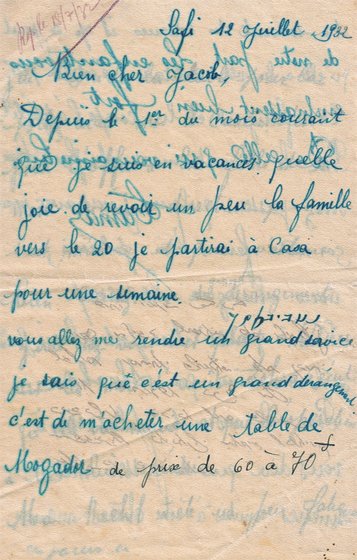 Rép. le 18/7/32
Safi 12 Juillet, 1932
Bien cher Jacob,
Depuis le 1er du mois courant
que je suis en vacances quelle
joie de revoir un peu la famille
vers le 20 je partirai à Casa
pour une semaine.
vous allez me rendre un grand service
je sais que c'est un grand dérangement
c'est de m'acheter une table de
Mogador de prix de 60 à 70 f